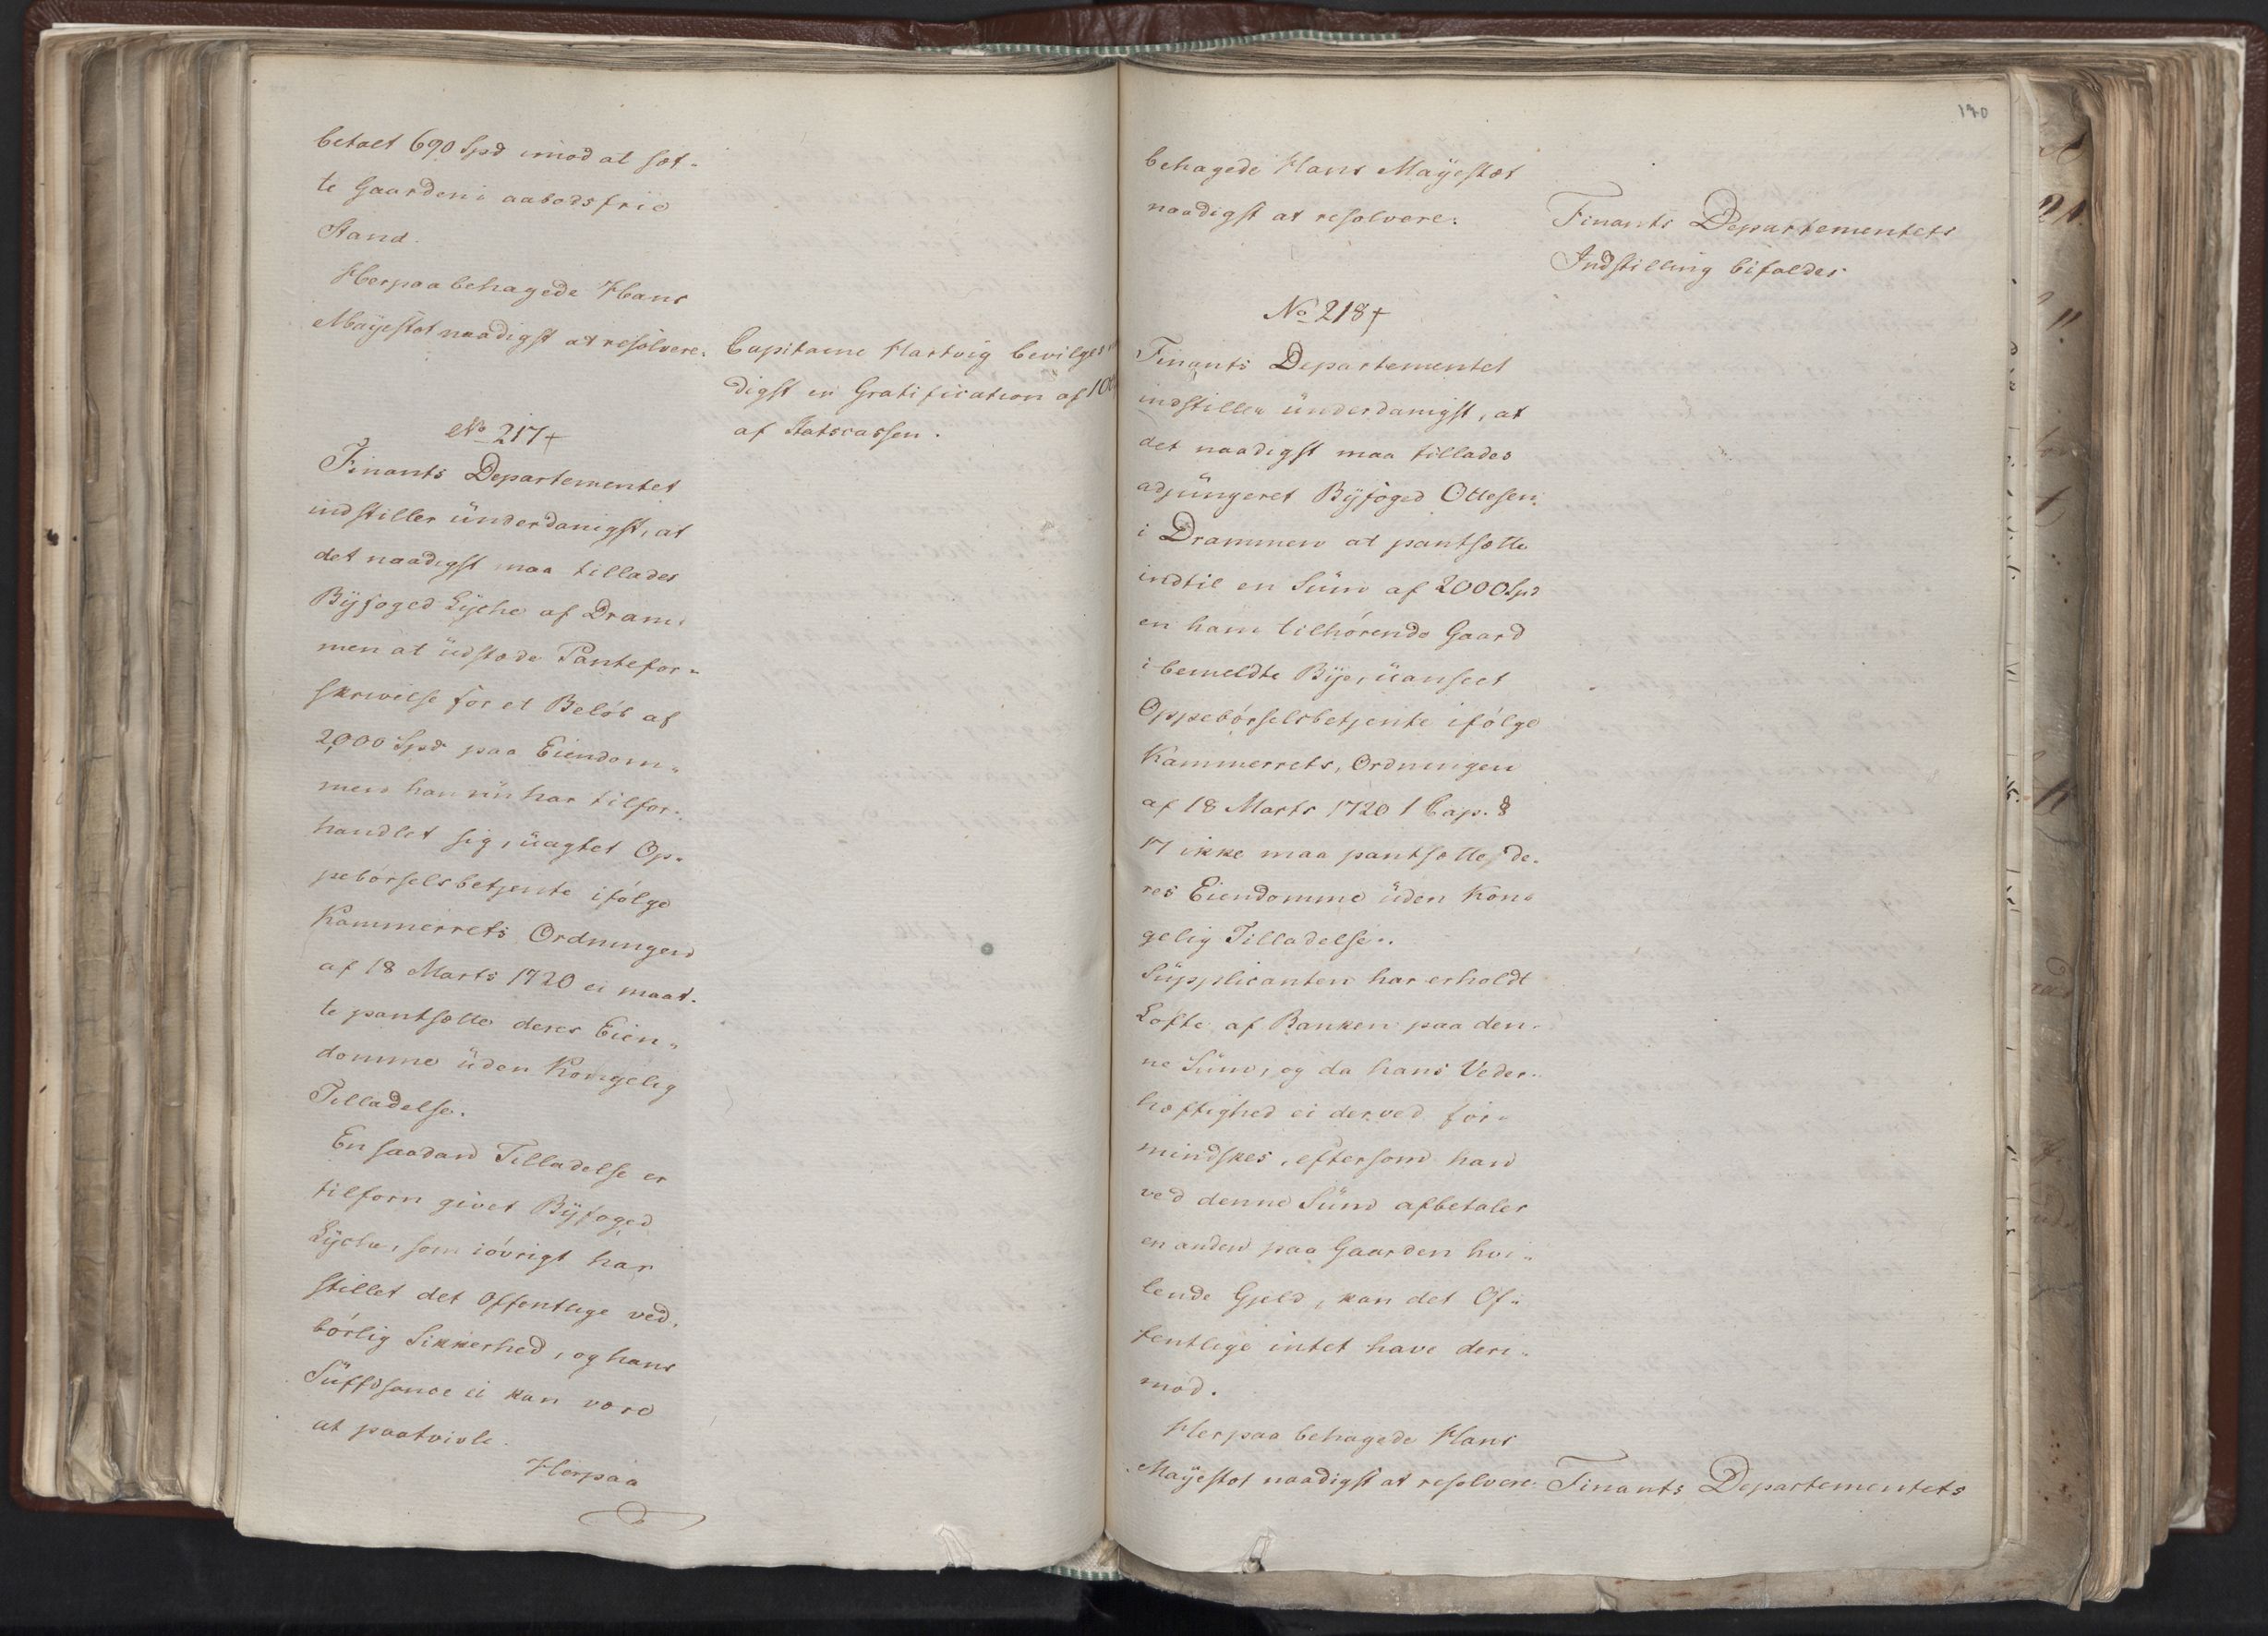 betalt 690 Spd imod at sæt-
te Gaarden i aabodsfrie
Stand.
Herpaa behagede Hans
Mayestæt naadigst at resolvere.
Capitaine Hartvig bevilges
digst en Gratification af 100
af Statscassen.
No 217+
Finants Departementet
indstiller ünderdanigst, at
det naadigst maa tillades
Byfoged Lyche af Dram-
men at üdstæde Pantefor-
skrivelse for et Beløb af
2000 Spd paa Eiendom-
men han nü har tilfor-
handlet sig, üagtet Op-
pebørselsbetjente ifølge
Kammerrets Ordningen
af 18 Marts 1720 ei maat-
te pantsætte deres Eien-
domme üden Kongelig
Tilladelse.
En saadan Tilladelse er
tilforn givet Byfoged
Lyche, som iøvrigt har
stillet det Offentlige ved-
børlig Sikkerhed, og hans
Süffisance ei kan være
at paatvivle.
Herpaa
190
behagede Hans Mayestæt
naadigst at resolvere.
Finants Departementets
Indstilling bifaldes
No 218+
Finants Departementet
indstiller ünderdanigst, at
det naadigst maa tillades
adjüngeret Byfoged Ottesen
i Drammen at pantsætte
indtil en Süm af 2000 Spd
en ham tilhørende Gaard
i bemeldte Bye, üanseet
Oppebørselsbetjente ifølge
Kammerrets, Ordningen
af 18 Marts 1720 1 Cap. §
17 ikke maa pantsætte de-
res Eiendomme üden Kon-
gelig Tilladelse.
Süpplicanten har erholdt
Løfte af Banken paa den-
ne Süm, og da hans Veder-
hæftighed ei derved for-
mindskes, eftersom han
ved denne Süm afbetaler
en anden paa Gaarden hvi-
lende Gjeld, kan det Of-
fentlige intet have deri-
mod.
Herpaa behagede Hans
Mayestæt naadigst at resolvere.
Finants Departementets